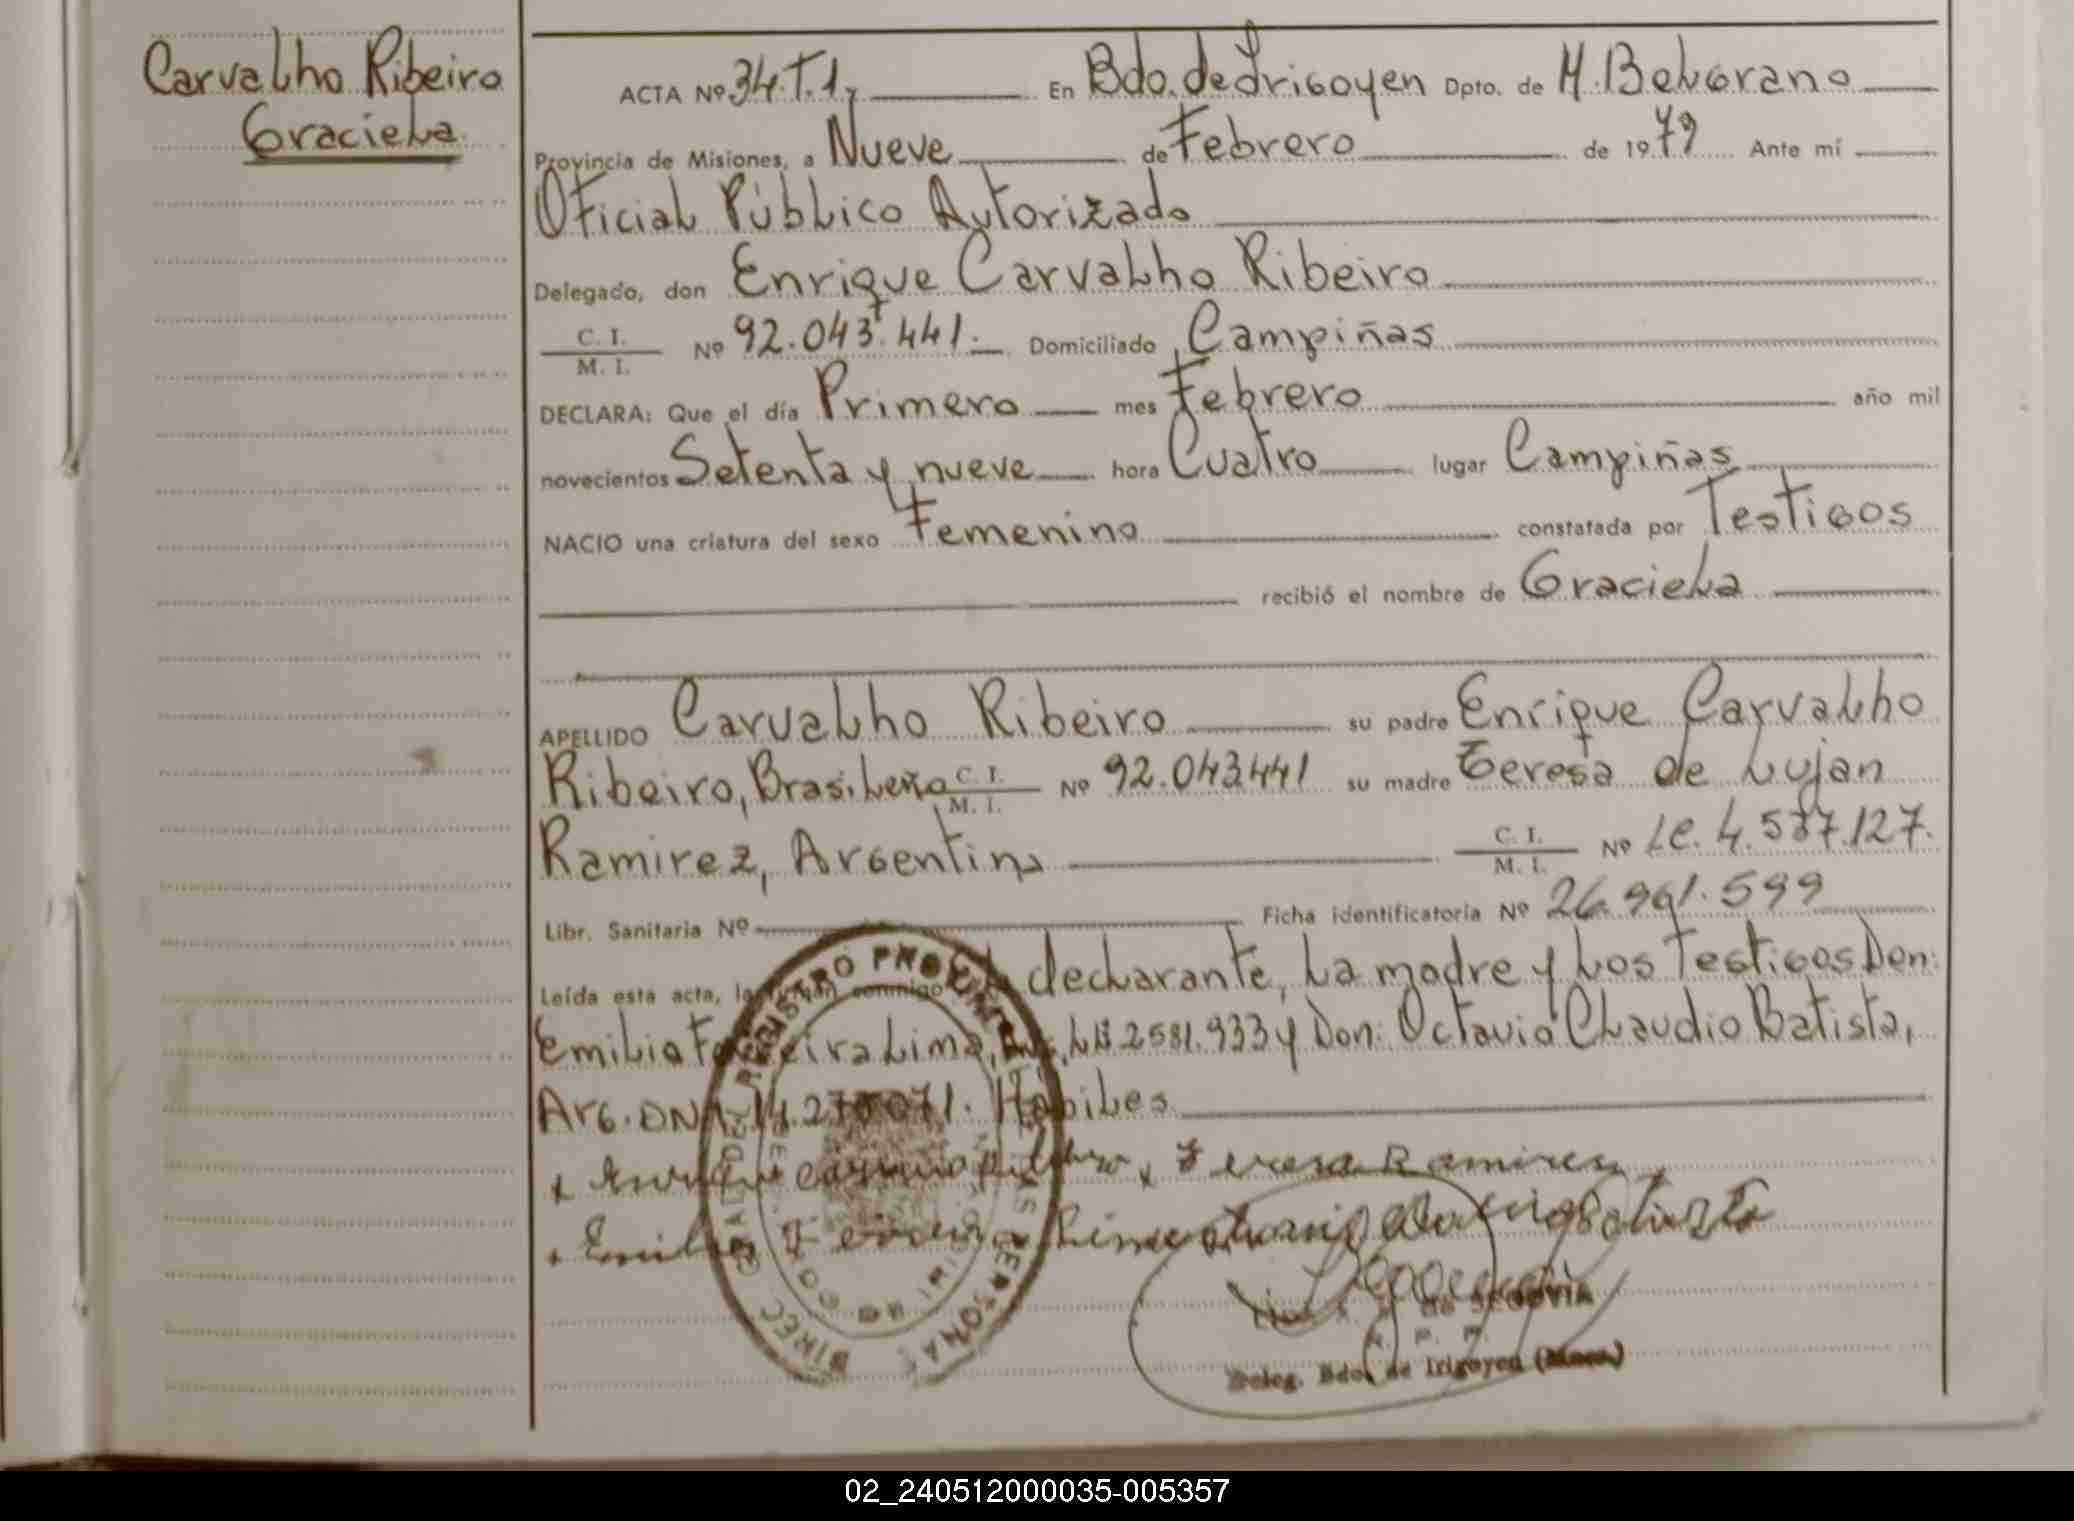 Carvalho Ribeiro
Graciela.
ACTA Nº 34.T.1, En Bdo. de Irigoyen Dpto. de M. Belgrano
Provincia de Misiones, a Nueve de Febrero de 1979 Ante mí
Oficial Público Autorizado
Delegado, don Enrique Carvalho Ribeiro
C. I.
M. I.
Nº 92.043.441. Domiciliado Campiñas
DECLARA: Que el día Primero mes Febrero año mil
novecientos Setenta y nueve hora Cuatro lugar Campiñas
NACIO una criatura del sexo Femenino constatada por Testigos
recibió el nombre de Graciela
APELLIDO Carvalho Ribeiro su padre Enrique Carvalho
Ribeiro, Brasileño C. I. M. I. Nº 92.043441 su madre Teresa de Lujan
Ramirez, Argentina C. I. M. I. Nº Lc. 4.587.127.
Libr. Sanitaria Nº Ficha identificatoria Nº 26.961.599
Leída esta acta, la conmigo declarante, La madre y Los Testigos Don:
Emilio Ferreira Lima, LE 2581.933 y Don: Octavio Claudio Batista,
Arg. DNI 14.270071. Hábiles
Teresa Ramirez
Emilio Ferreira Lima
REGISTRO PROVINCIAL
SEGOVIA
Deleg. Bdo. de Irigoyen (Mnes.)
02_240512000035-005357